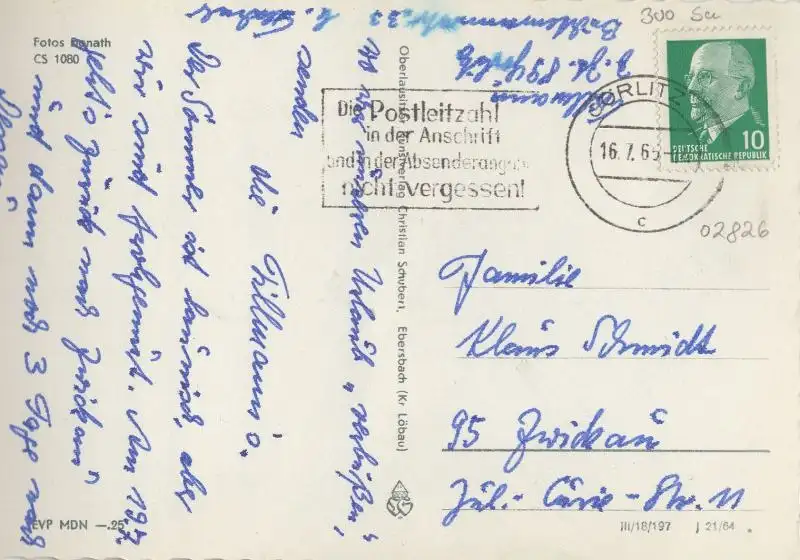 Fotos Donath
CS 1080
300 Su
Tillmann
z. Zt. 89 Görlitz
Die Postleitzahl
in der Anschrift
und in der Absenderangabe
nicht vergessen!
GÖRLITZ
16.7.65
c
10
DEUTSCHE
DEMOKRATISCHE REPUBLIK
02826
Oberlausitzer Kunstverlag Christian Schubert, Ebersbach (Kr Löbau)
Grüße
senden
die Tillmann's.
Der Sommer ist launisch, aber
wir sind frohgemut. Am 19.7.
geht's zurück nach Zwickau
und dann noch 3 Tage nach
wo wir unseren Urlaub "verbüßen",
Familie
Klaus Schmidt
95 Zwickau
Jul.-Curie-Str. 11
EVP MDN —.25
III/18/197 J 21/64